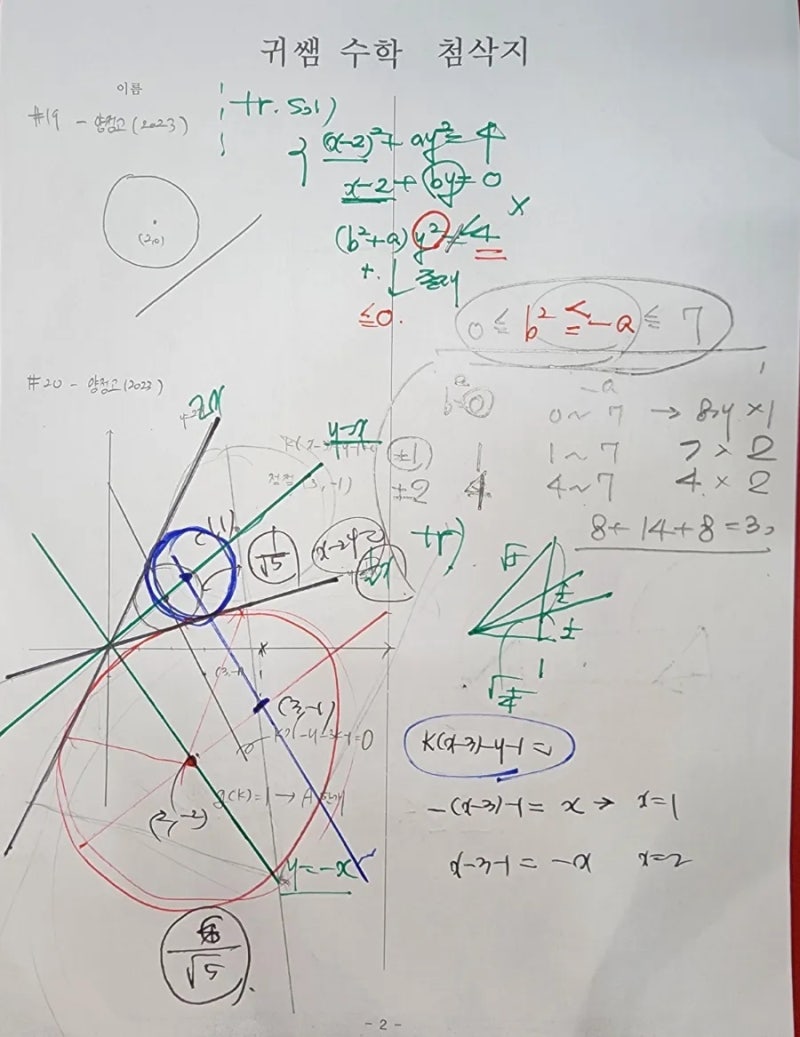 귀쌤 수학 첨삭지
이름
#19 - 양정고 (2023)
(2,0)
tr. Sol)
(x-2)² + ay² = 4
x-2 + by = 0
(b²+a) y² = 4
≤0.
0 ≤ b² ≤ -a ≤ 7
b² -a
0 0 ~ 7 → 8개 × 1
±1 1 1 ~ 7 7 × 2
±2 4 4 ~ 7 4 × 2
8 + 14 + 8 = 30
#20 - 양정고 (2023)
2x
y=x
점점 (3, -1)
(1,1)
1/√5
x-2y=0
1/2x
tr)
(3,-1)
(3,-1)
Kx-y-3K-1=0
g(K)=1 → A 한개
(2,-2)
y=-x
6/√5
K(x-3)-y-1=0
-(x-3)-1 = x → x=1
x-3-1 = -x x=2
- 2 -